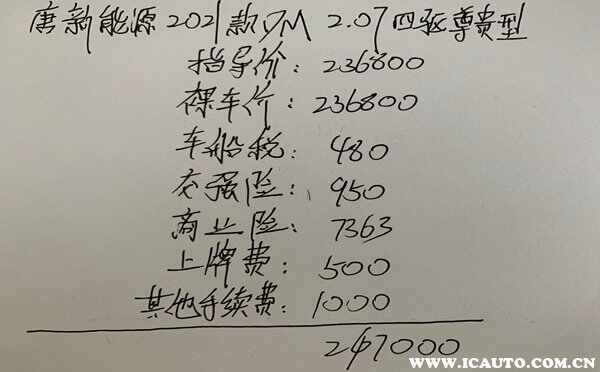 唐新能源2021款DM 2.0T四驱尊贵型
指导价：236800
裸车价：236800
车船税：480
交强险：950
商业险：7363
上牌费：500
其他手续费：1000
247000
WWW.ICAUTO.COM.CN